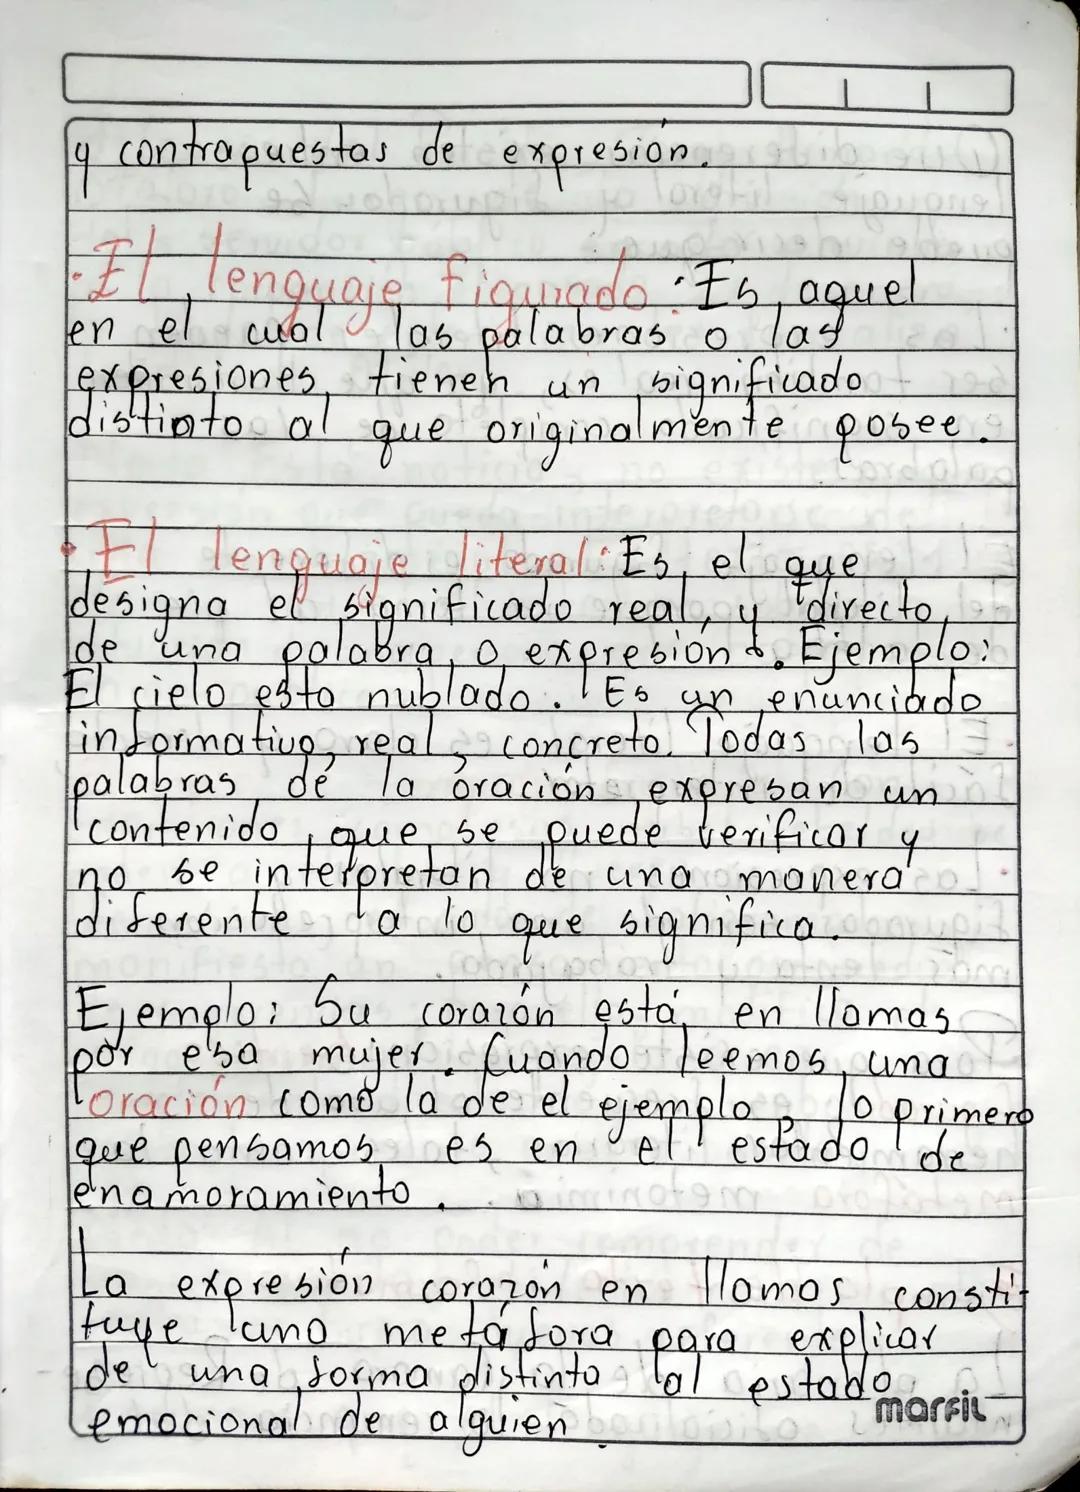 y contrapuestas de expresión.
·El lenguaje figurado: Es aquel
en el cual las palabras o las
expresiones tienen un significado
distinto al que originalmente posee.
·El lenguaje literal: Es el que
designa el significado real, y directo
de una palabra o expresión. Ejemplo:
El cielo esta nublado. Es un enunciado
informativo, real, concreto. Todas las
palabras de la oración expresan un
contenido que se puede verificar y
no se interpretan de una manera
diferente a lo que significa.
Ejemplo: Su corazón está en llamas
por esa mujer. Cuando leemos una
oración como la de el ejemplo, lo primero
que pensamos es en el estado de
enamoramiento.
La expresión corazón en llamas consti-
tuye una metáfora para explicar
de una forma distinta al estado
emocional de alguien.
marfil